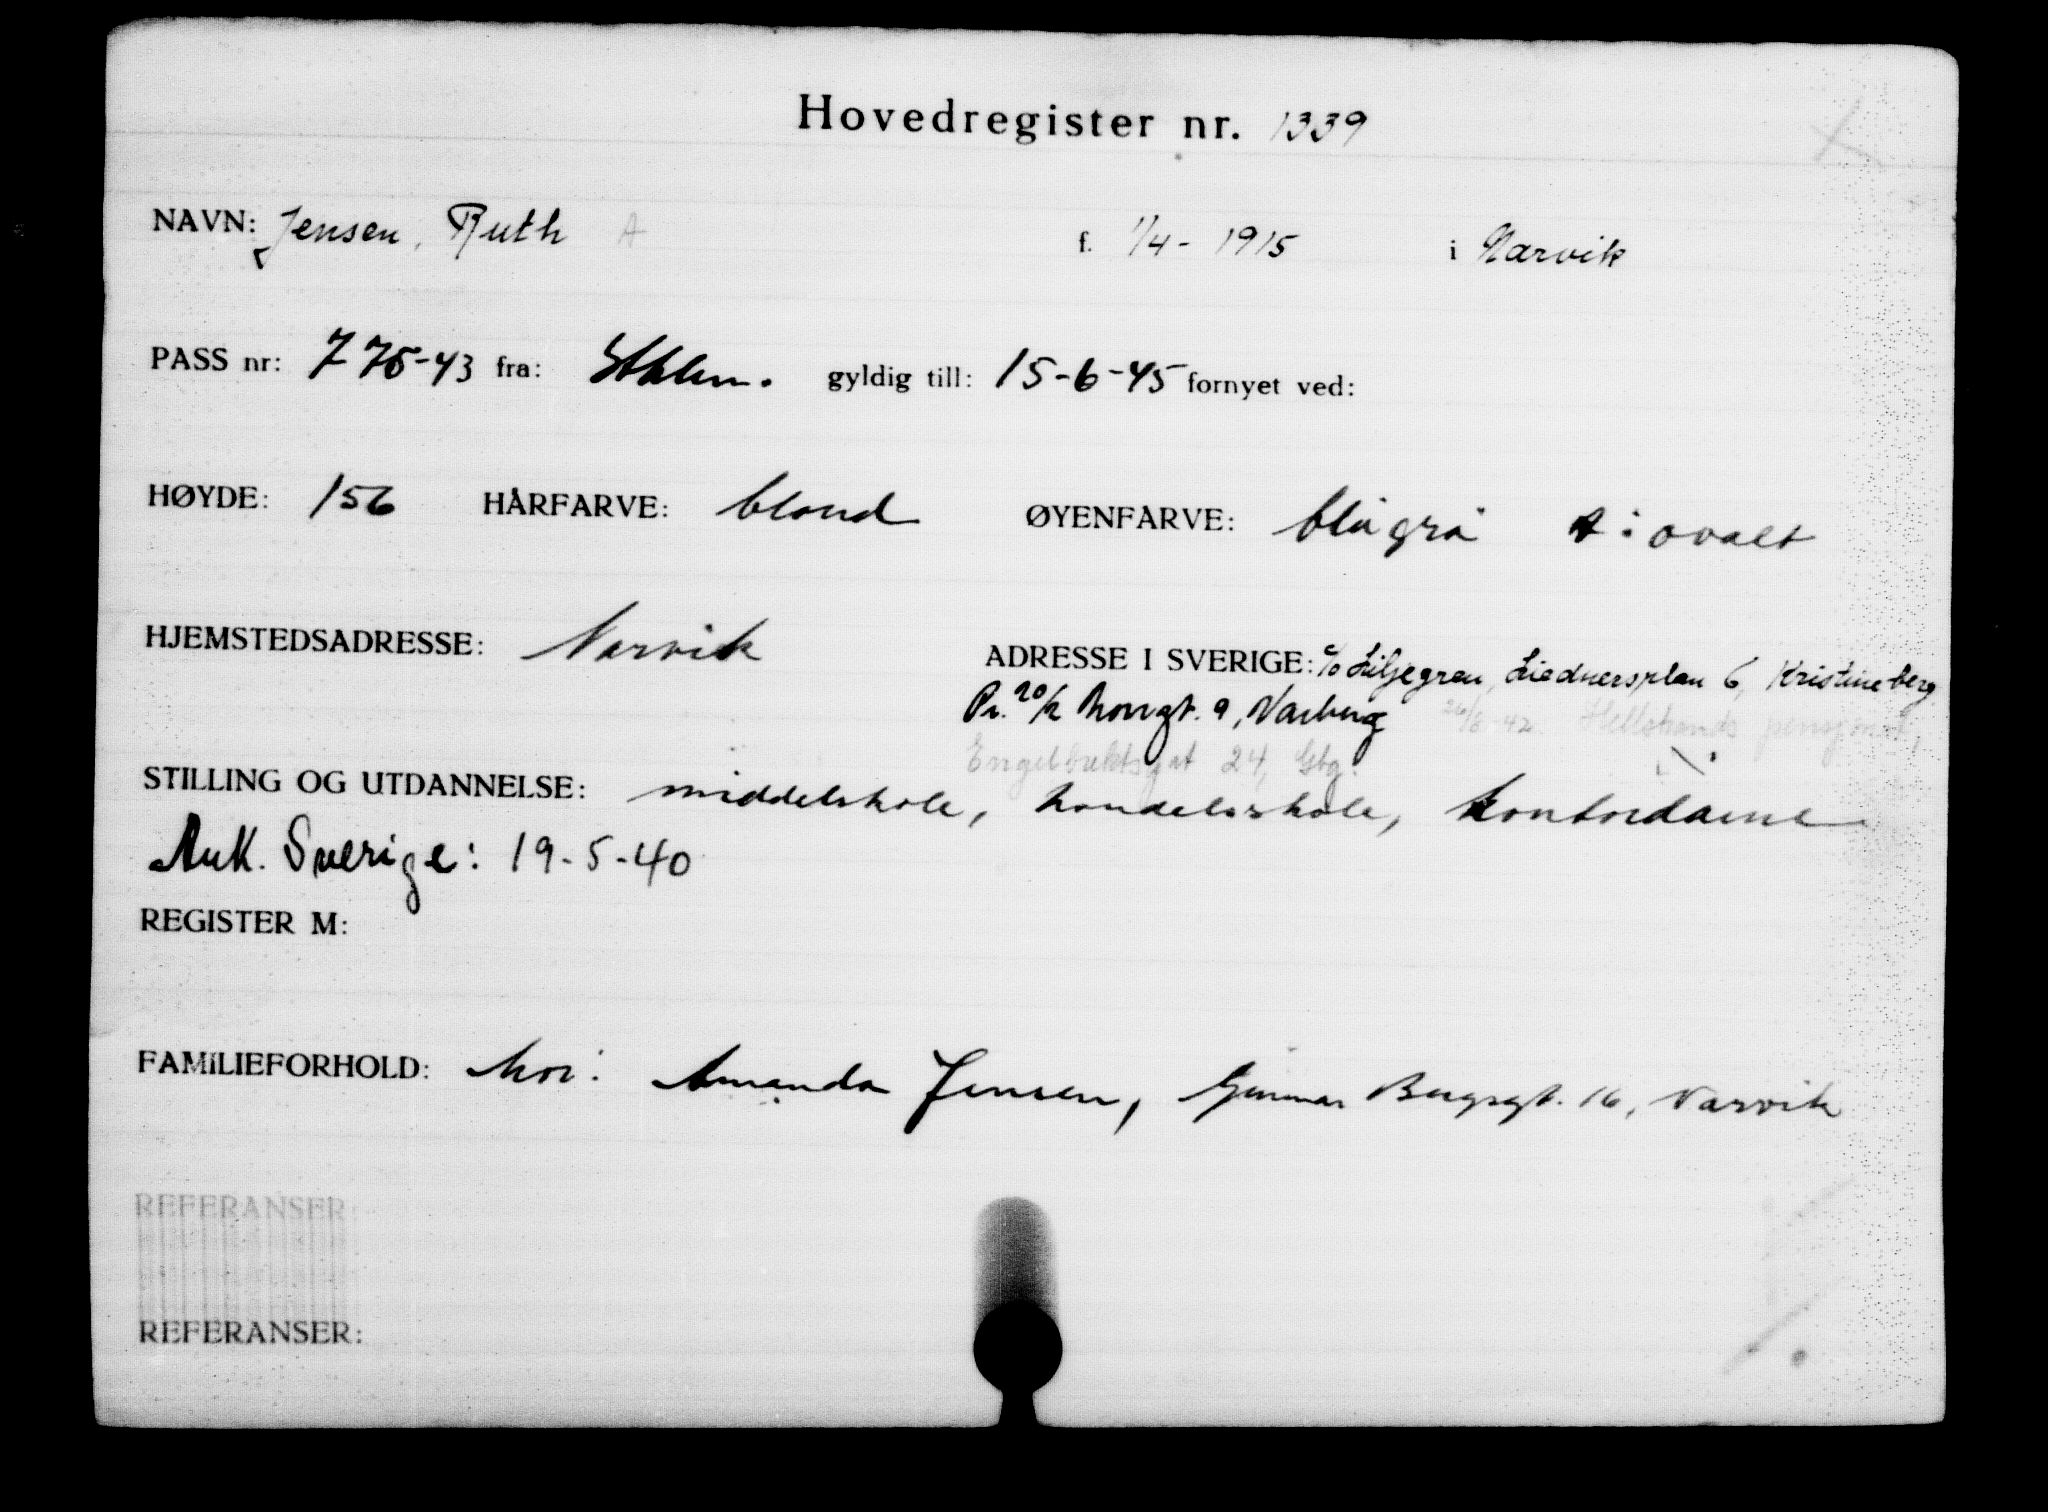 Hovedregister nr. 1339
NAVN: Jensen, Ruth A f. 1/4 - 1915 i Narvik
PASS nr: 776-43 fra: Sthlm. gyldig till: 15-6-45 fornyet ved:
HØYDE: 156 HÅRFARVE: blond ØYENFARVE: blågrå A: ovalt
HJEMSTEDSADRESSE: Narvik ADRESSE I SVERIGE: c/o Liljegren, Liednersplan 6, Kristineberg
Pr. 20/2 9, Varberg 26/6-42. Hellstrands pensjonat,
Engelbrektsgat 24, Gbg.
STILLING OG UTDANNELSE: middelskole, handelsskole, kontordame
Ank. Sverige: 19-5-40
REGISTER M:
FAMILIEFORHOLD: Mor: Amanda Jensen, Gunnar Bergsgt. 16, Narvik
REFERANSER:
REFERANSER: